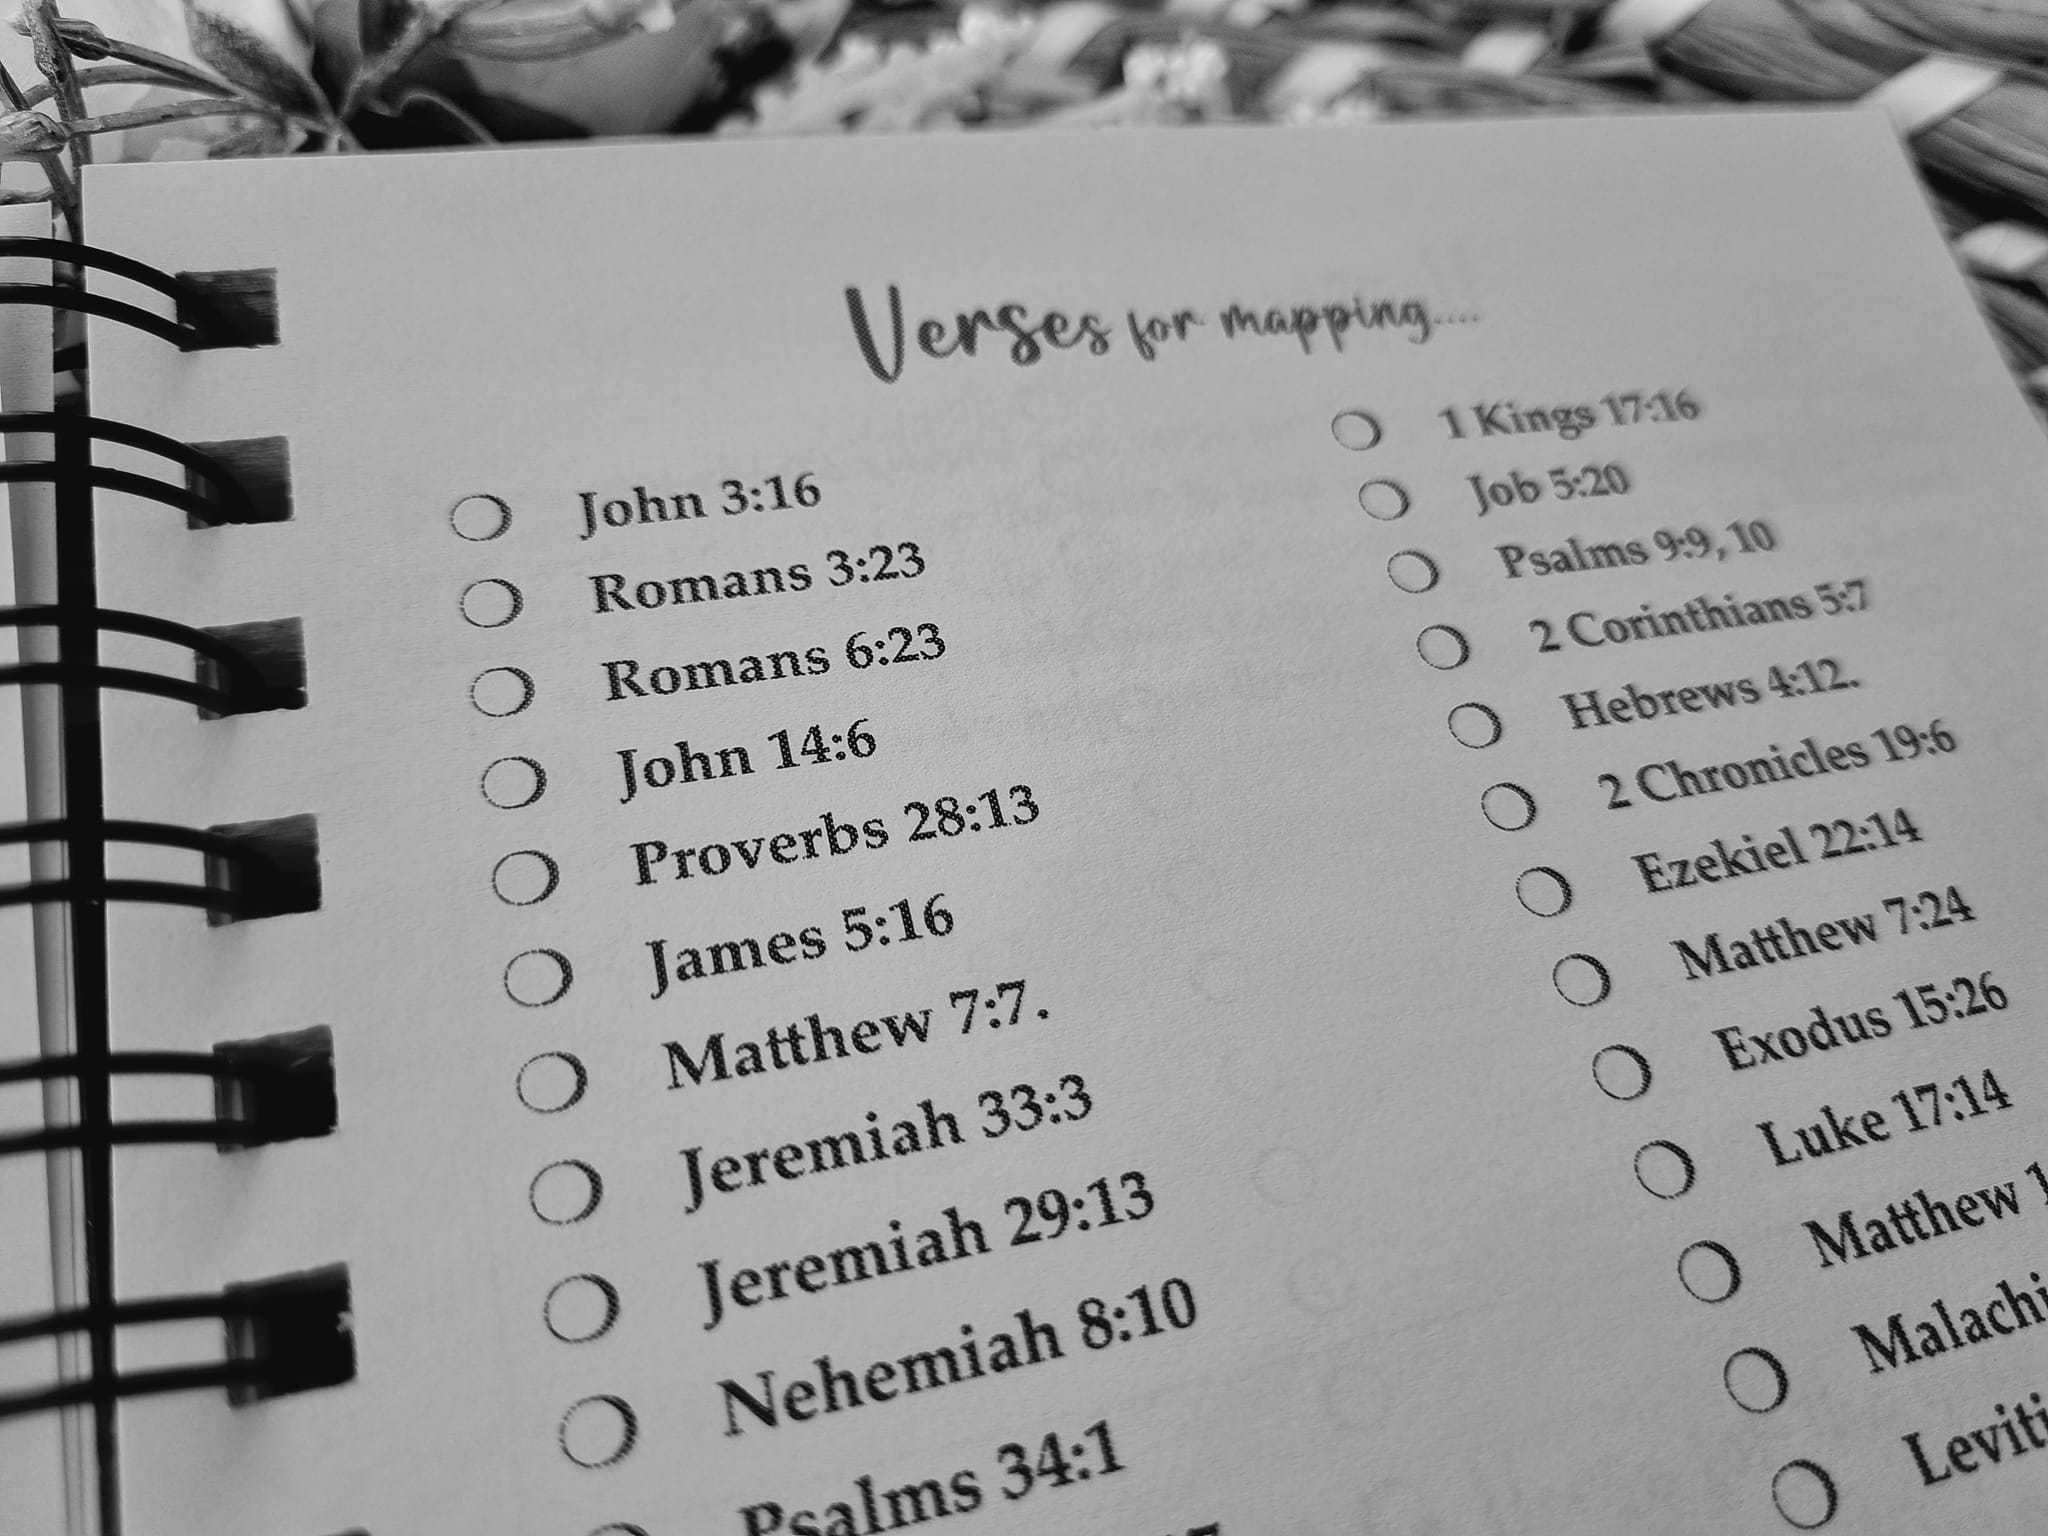 Verses for mapping....
John 3:16
Romans 3:23
Romans 6:23
John 14:6
Proverbs 28:13
James 5:16
Matthew 7:7.
Jeremiah 33:3
Jeremiah 29:13
Nehemiah 8:10
Psalms 34:1
1 Kings 17:16
Job 5:20
Psalms 9:9, 10
2 Corinthians 5:7
Hebrews 4:12.
2 Chronicles 19:6
Ezekiel 22:14
Matthew 7:24
Exodus 15:26
Luke 17:14
Matthew
Malachi